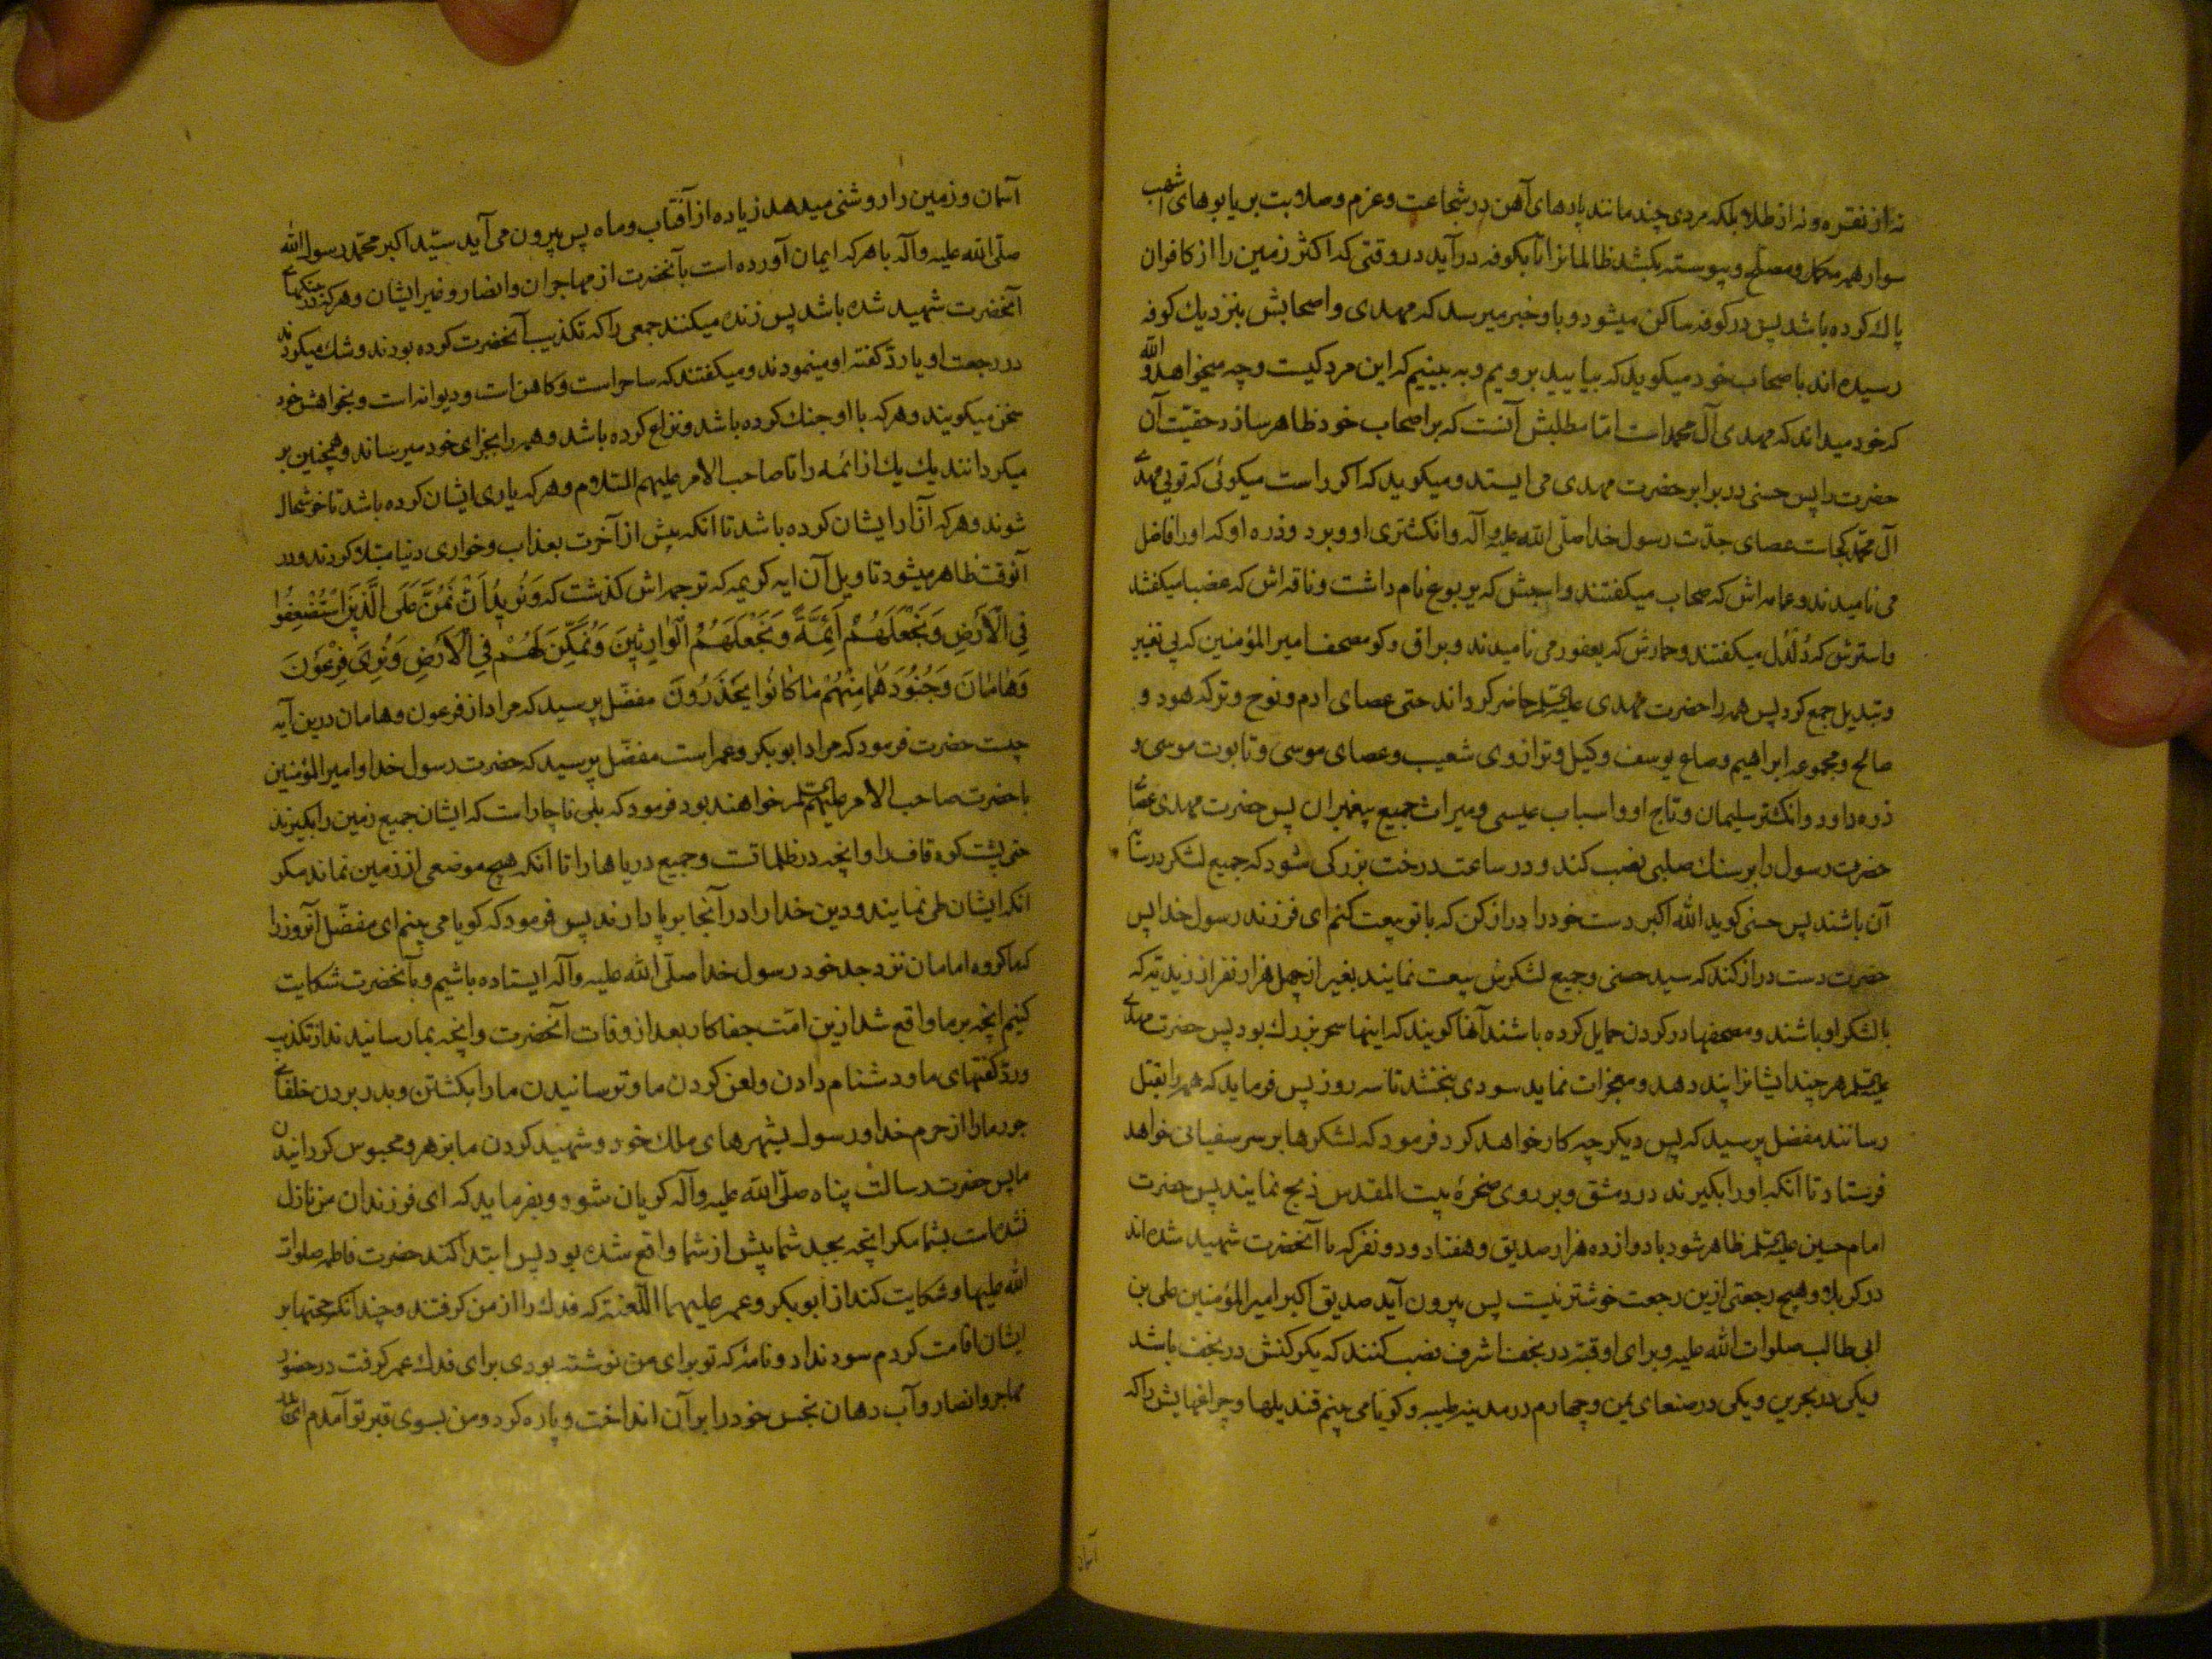 نه از نقره و نه از طلا بلکه مردی چند مانند پارهای آهن در شجاعت و عزم و صلابت بر یابوهای اشهب
سوار همه مکمل و مصلح و پیوسته بکشد ظالمانرا تا بکوفه درآید در وقتی که اکثر زمین را از کافران
پاک کرده باشد پس در کوفه ساکن میشود و باو خبر میرسد که مهدی و اصحابش بنزدیك کوفه
رسیده اند باصحاب خود میکوید که بیایید برویم و به بینیم که این مرد کیست و چه میخواهد والله
که خود میداند که مهدی آل محمد است امّا مطلبش آنست که بر اصحاب خود ظاهر سازد حقیّت آن
حضرت را پس حسنی در برابر حضرت مهدی می ایستد و میکوید که اکر راست میکوئی که تویی مهدی
آل محمّد کجاست عصای جدّت رسول خدا صلّی الله علیه و آله و انکشتری او و برد و ذره او که او را فاضل
می نامیدند و عمامه اش که سحاب میکفتند و اسبش که یربوع نام داشت و ناقه اش که عضبا میکفتند
و استرش که دُلْدُل میکفتند و حمارش که یعفور می نامیدند و براق و کو مصحف امیر المؤمنین که بی تغییر
و تبدیل جمع کرد پس همه را حضرت مهدی علیه السلم حاضر کرداند حتی عصای ادم و نوح و ترکه هود و
صالح و مجموعه ابراهیم و صاع یوسف و کیل و ترازوی شعیب و عصای موسی و تابوت موسی و
ذره داود و انکشتر سلیمان و تاج او و اسباب عیسی و میراث جمیع پیغمبران پس حضرت مهدی عصا
حضرت رسول را بر سنك صلبی نصب کند و در ساعت درخت بزرکی شود که جمیع لشکر در سایه
آن باشند پس حسنی کوید الله اکبر دست خود را دراز کن که با تو بیعت کنم ای فرزند رسول خدا پس
حضرت دست دراز کند که سید حسنی و جمیع لشکرش بیعت نمایند بغیر از چهل هزار نفر از زیدیّه که
با لشکر او باشند و مصحفها در کردن حمایل کرده باشند آنها کویند که اینها سحر بزرك بود پس حضرت مهدی
علیه السلم هر چند ایشانرا پند دهد و معجزات نماید سودی نبخشد تا سه روز پس فرماید که همه را بقتل
رسانند مفضل پرسید که پس دیکر چه کار خواهد کرد فرمود که لشکرها بر سر سفیانی خواهد
فرستاد تا آنکه او را بکیرند در دمشق و بر روی صخرهٔ بیت المقدس ذبح نمایند پس حضرت
امام حسین علیه السلم ظاهر شود با دوازده هزار صدیق و هفتاد و دو نفر که با آنحضرت شهید شده اند
در کربلا و هیچ رجعتی ازین رجعت خوشتر نیست پس بیرون آید صدیق اکبر امیر المؤمنین علی بن
ابی طالب صلوات الله علیه و برای او قبّه در نجف اشرف نصب کنند که یکرکنش در نجف باشد
و یکی در بحرین و یکی در صنعای یمن و چهارم در مدینه طیبه و کویا می بینم قندیلها و چراغهایش را که
آسمان
آسمان و زمین را روشنی میدهد زیاده از آفتاب و ماه پس بیرون می آید سیّد اکبر محمّد رسول الله
صلّی الله علیه و آله با هر که ایمان آورده است بآنحضرت از مهاجران و انصار و غیر ایشان و هر که در جنکهای
آنحضرت شهید شده باشد پس زنده میکنند جمعی را که تکذیب آنحضرت کرده بودند و شك میکردند
در رجعت او یا ردّ کفته او مینمودند و میکفتند که ساحر است و کاهن است و دیوانه است و بخواهش خود
سخن میکویند و هر که با او جنك کرده باشد و نزاع کرده باشد و همه را بجزای خود میرساند و همچنین بر
میکردانند یك یك از ائمه را تا صاحب الامر علیهم السّلام و هر که یاری ایشان کرده باشد تا خوشحال
شوند و هر که آزار ایشان کرده باشد تا انکه پیش از آخرت بعذاب و خواری دنیا مبتلا کردند و در
آنوقت ظاهر میشود تاویل آن ایه کریمه که ترجمه اش کذشت که وَنُریدُ اَنْ نَمُنَّ عَلَی الَّذینَ اسْتُضْعِفُوا
فِی الْاَرْضِ وَنَجْعَلَهُمْ اَئِمَّةً وَنَجْعَلَهُمُ الْوٰارِثینَ وَنُمَکِّنَ لَهُمْ فِی الْاَرْضِ وَنُرِیَ فِرْعَوْنَ
وَهٰامٰانَ وَجُنُودَهُمٰا مِنْهُمْ مٰا کٰانُوا یَحْذَرُونَ مفضّل پرسید که مراد از فرعون و هامان درین آیه
چیست حضرت فرمود که مراد ابوبکر و عمر است مفضّل پرسید که حضرت رسول خدا و امیر المؤمنین
با حضرت صاحب الامر علیهم السلم خواهند بود فرمود که بلی ناچار است که ایشان جمیع زمین را بکیرند
حتی پشت کوه قاف را و انچه در ظلماتست و جمیع دریاها را تا آنکه هیچ موضعی از زمین نماند مکر
انکه ایشان طی نمایند و دین خدا را در آنجا برپا دارند پس فرمود که کویا می بینم ای مفضّل آنروز را
که ما کروه امامان نزد جد خود رسول خدا صلّی الله علیه و آله ایستاده باشیم و بآنحضرت شکایت
کنیم انچه بر ما واقع شد ازین امّت جفاکار بعد از وفات آنحضرت و انچه بما رسانیدند از تکذیب
و ردّ کفتهای ما و دشنام دادن و لعن کردن ما و ترسانیدن ما را بکشتن و بدر بردن خلفای
جور ما را از حرم خدا و رسول بشهرهای ملك خود و شهید کردن ما بزهر و محبوس کردانیدن
ما پس حضرت رسالت پناه صلّی الله علیه و آله کریان شود و بفرماید که ای فرزندان من نازل
نشده است بشما مکر انچه بجد شما پیش از شما واقع شده بود پس ابتدا کند حضرت فاطمه صلوات
الله علیها و شکایت کند از ابوبکر و عمر علیهما اللّعنة که فدك را از من کرفتند و چندانکه حجتها بر
ایشان اقامت کردم سود نداد و نامهٔ که تو برای من نوشته بودی برای فدك عمر کرفت در حضور
مهاجر و انصار و آب دهان نجس خود را بر آن انداخت و پاره کرد و من بسوی قبر تو آمدم ای